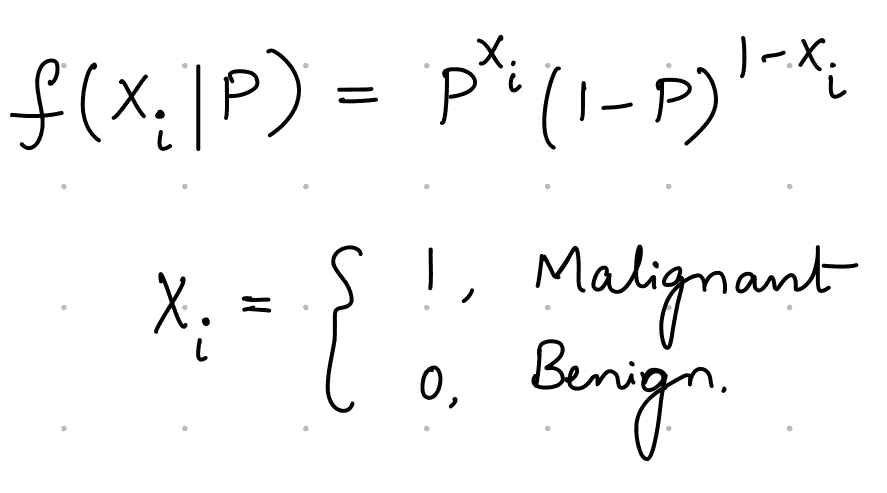 f(x_i|P) = P^{x_i} (1-P)^{1-x_i}
X_i = { 1, Malignant
0, Benign.